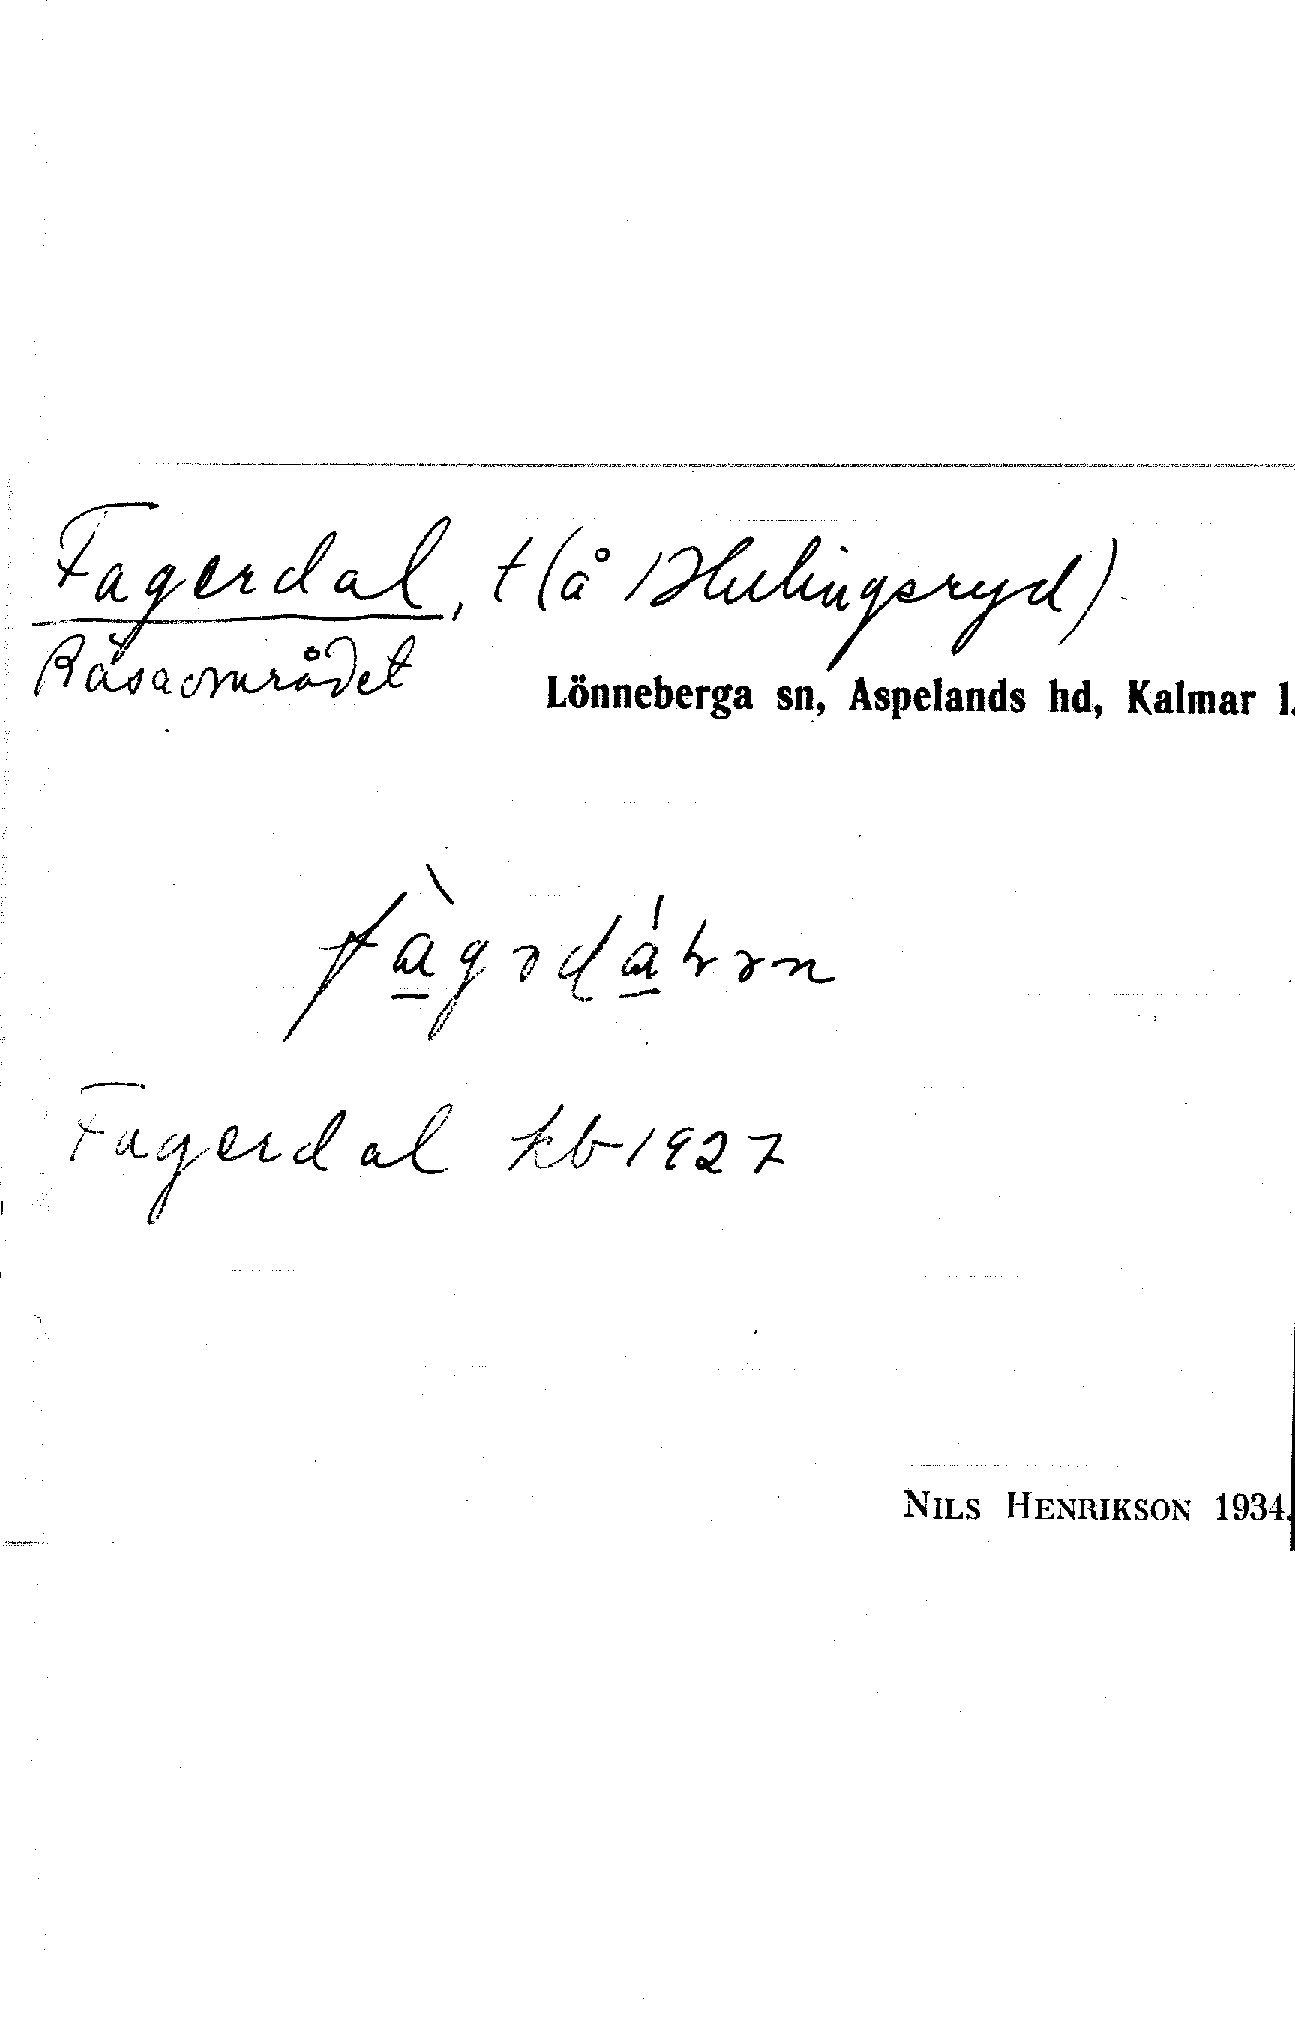 Fagerdal, t (å Hulingsryd)
Råsaområdet
Lönneberga sn, Aspelands hd, Kalmar l.
Fagerdal kb 1927
NILS HENRIKSON 1934.